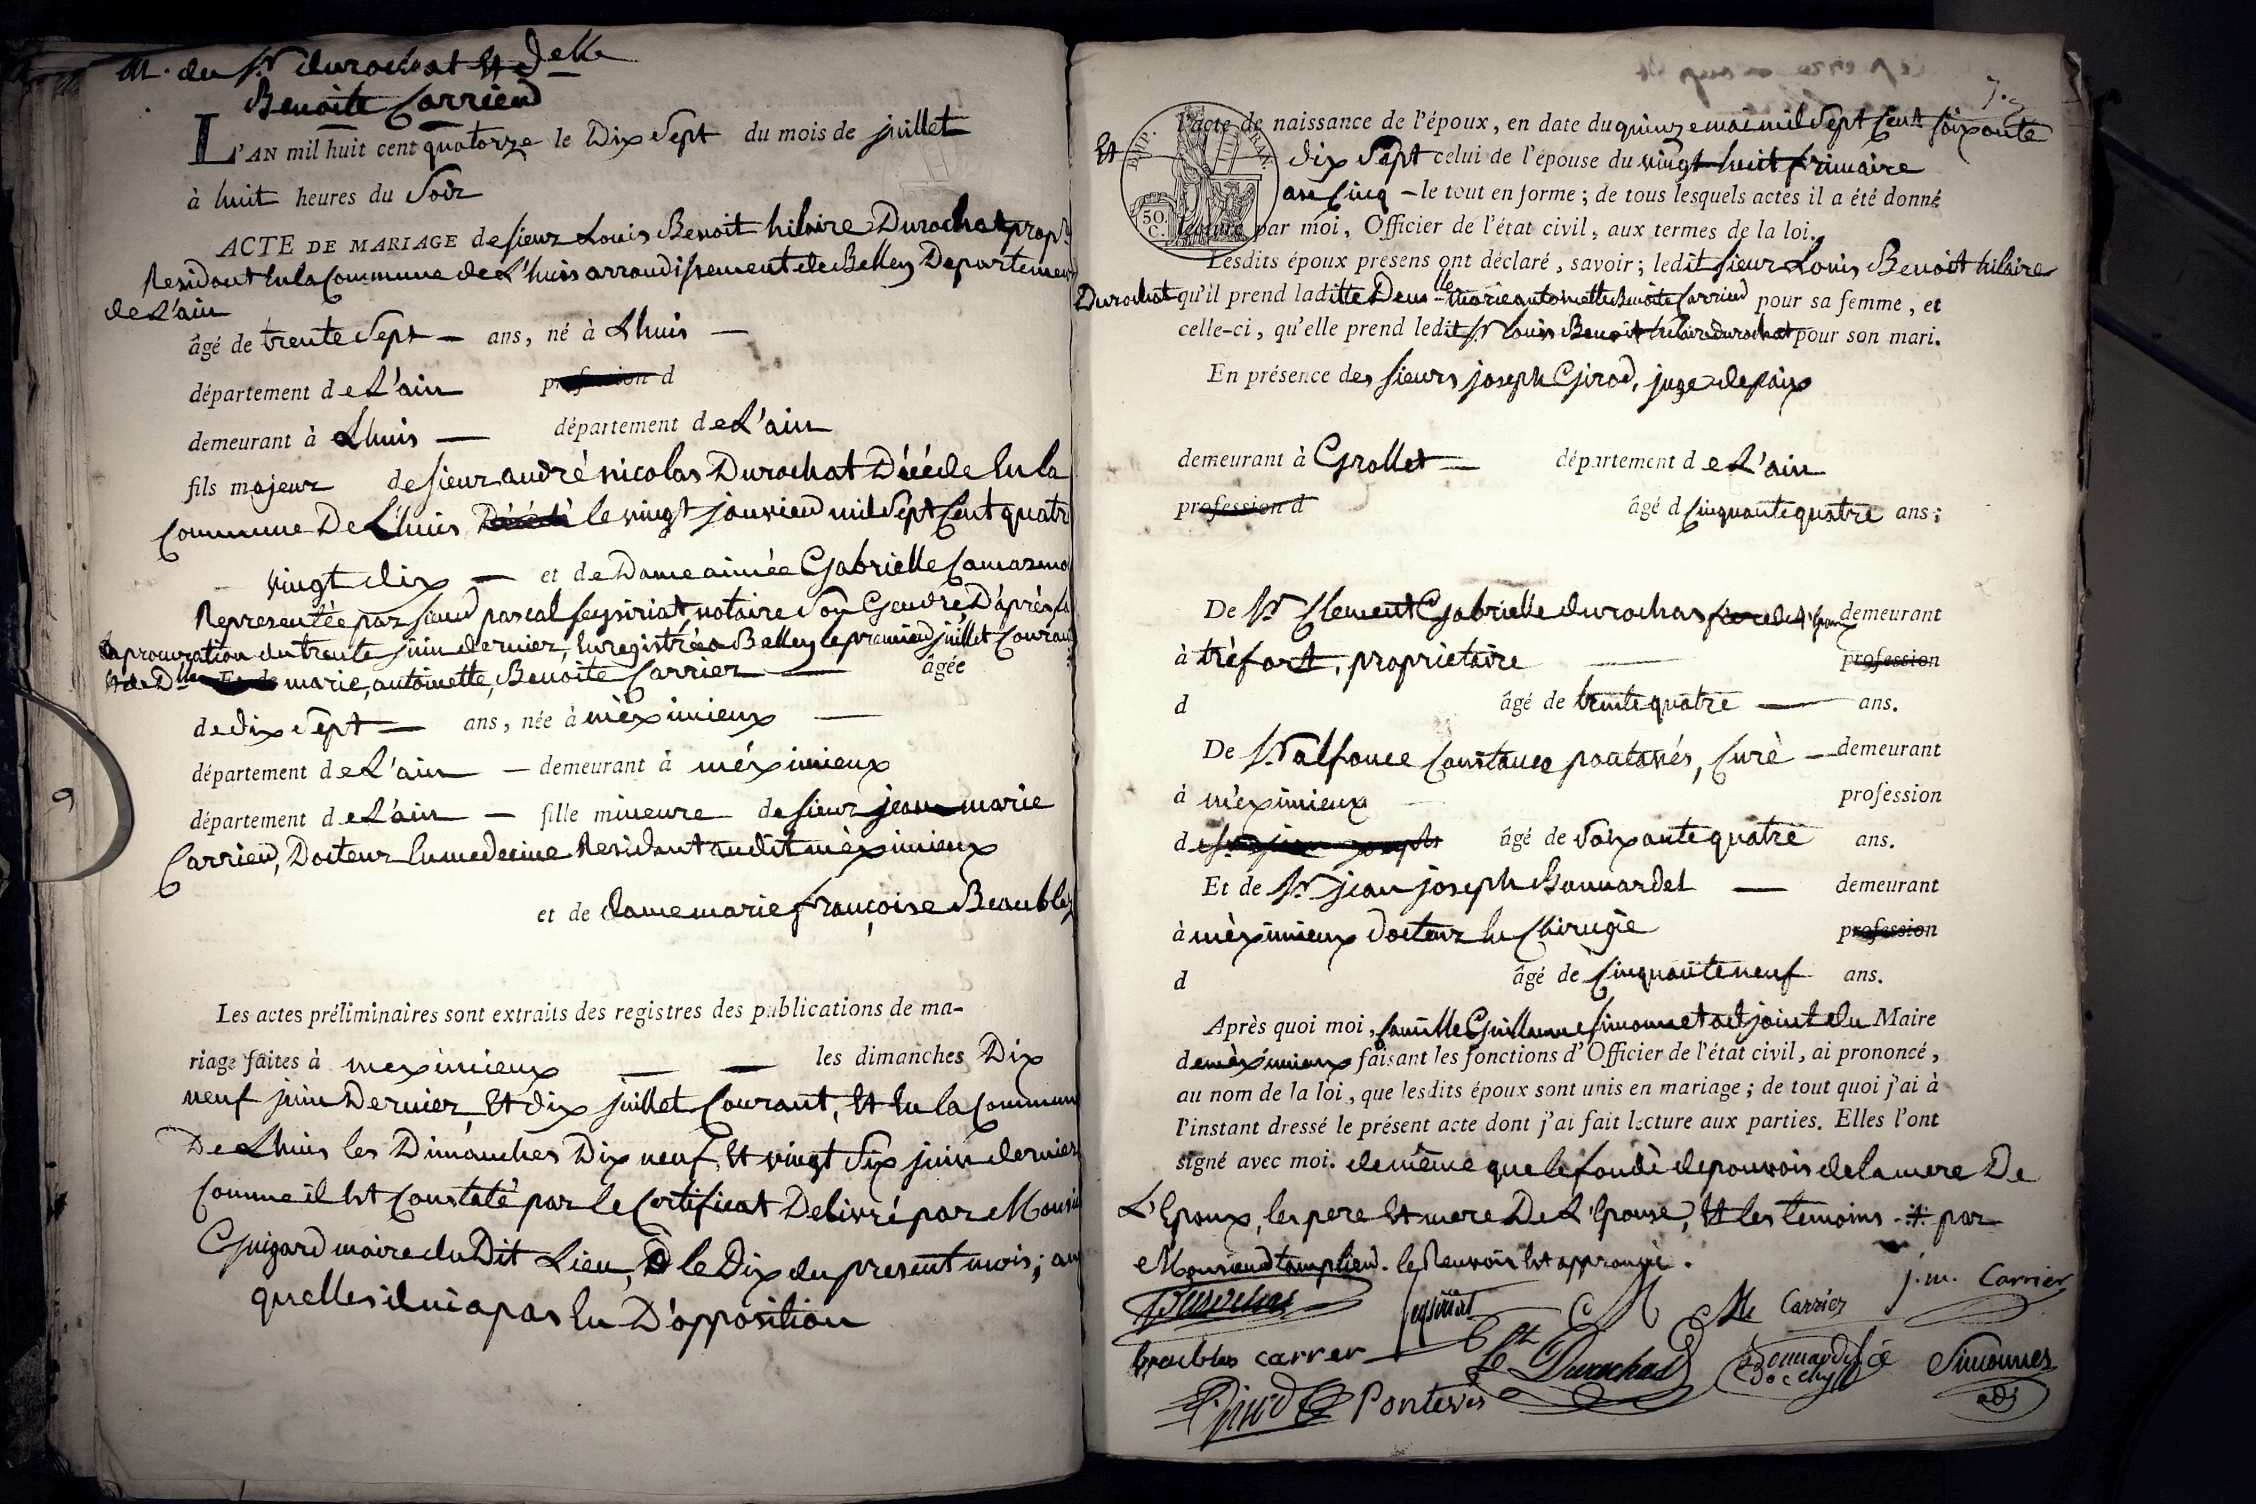 M. du Sr durochat Et Delle
Benoite Carrier
L'AN mil huit cent quatorze le Dix Sept du mois de juillet
à huit heures du Soir
ACTE DE MARIAGE de sieur Louis Benoit hilaire Durochat propre
Residant En la Commune de L'huis arrondissement de Belley Departement
de L'ain
âgé de trente Sept — ans, né à Lhuis —
département de L'ain profession d
demeurant à Lhuis — département de L'ain
fils majeur de sieur andré nicolas Durochat Décédé En la
Commune De L'huis Décédé le vingt janvier mil Sept Cent quatre
vingt dix — et de Dame aimée Gabrielle
Representée par sieur pascal seysiriat, notaire Son Gendre D'après sa
procuration du trente juin dernier, Enregistrée a Belley le premier juillet Courant
Et de Dlle marie, antoinette, Benoite Carrier — âgée
de dix Sept — ans, née à mèximieux —
département de L'ain — demeurant à méximieux
département de L'ain — fille mineure de sieur jean marie
Carrier, Docteur En medecine Residant audit mèximieux
et de dame marie françoise Beaublez
Les actes préliminaires sont extraits des registres des publications de ma-
riage faites à meximieux — — les dimanches Dix
neuf juin Dernier Et dix juillet Courant, Et En la Commune
De Lhuis les Dimanches Dix neuf Et vingt Six juin dernier
Comme il Est Constaté par le Certificat Delivré par Monsieur
Guigard maire du Dit Lieu, le Dix du present mois; au
quelles il ni a pas Eu D'opposition
l'acte de naissance de l'époux, en date du quinze mai mil Sept Cent Soixante
Et dix Sept celui de l'épouse du vingt huit frimaire
an Cinq — le tout en forme; de tous lesquels actes il a été donné
lecture par moi, Officier de l'état civil, aux termes de la loi.
Lesdits époux présens ont déclaré, savoir; ledit sieur Louis Benoit hilaire
Durochat qu'il prend laditte Demlle marie antoinette Benoite Carrier pour sa femme, et
celle-ci, qu'elle prend ledit Sr Louis Benoit hilaire durochat pour son mari.
En présence des sieurs joseph Girod, juge de paix
demeurant à Grollet — département de L'ain
profession d âgé d Cinquante quatre ans;
De Sr Clement Gabrielle durochas frere de L'Epoux demeurant
à trèfort, propriétaire — profession
d âgé de trente quatre — ans.
De Sr alfonce Constance pontevés, Curè — demeurant
à mèximieux profession
d âgé de Soixante quatre ans.
Et de Sr jean joseph Bonnardel — demeurant
à mèximieux Docteur En Chirugie profession
d âgé de Cinquante neuf ans.
Après quoi moi, Camille Guillaume Simonnet adjoint du Maire
de mèximieux faisant les fonctions d'Officier de l'état civil, ai prononcé,
au nom de la loi, que lesdits époux sont unis en mariage; de tout quoi j'ai à
l'instant dressé le présent acte dont j'ai fait lecture aux parties. Elles l'ont
signé avec moi. de même que le fondé de pouvoir de la mere De
L'Epoux, les pere Et mere De L'Epouse, Et les temoins. par
Monsieur templier. le Renvois Est approuvé.
Durochat Seysiriat Carrier j. m. Carrier
beaublez carrer Durochat Bonnardel Simonnet
Girod Pontevés adj
REP. FRAN.
50. C.
9